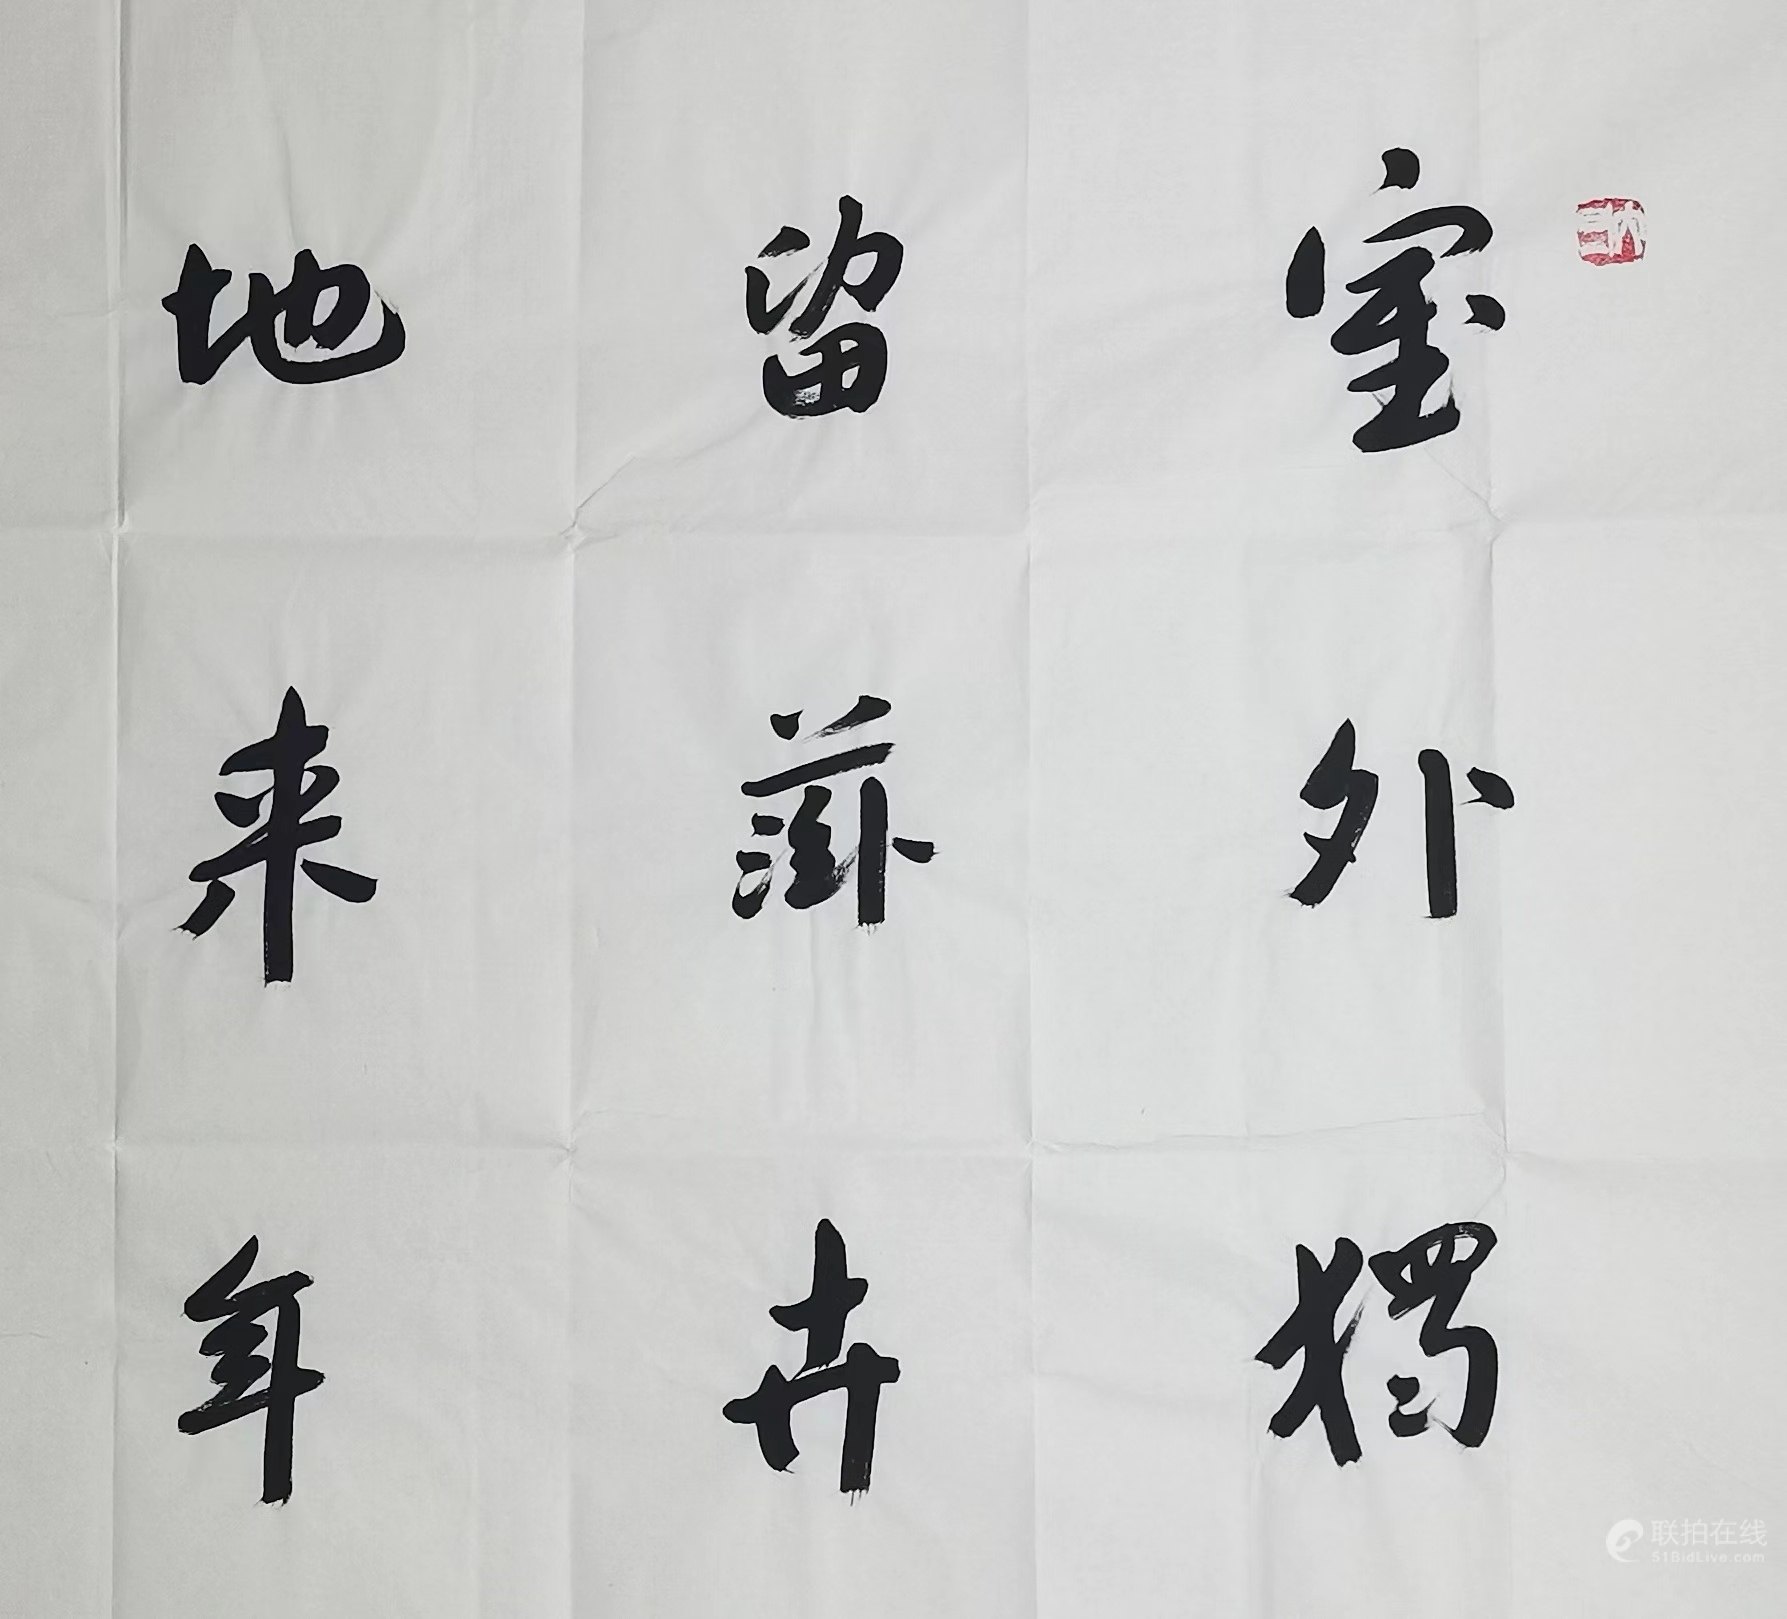 室外獨
留卉
地来年
联拍在线
51BidLive.com